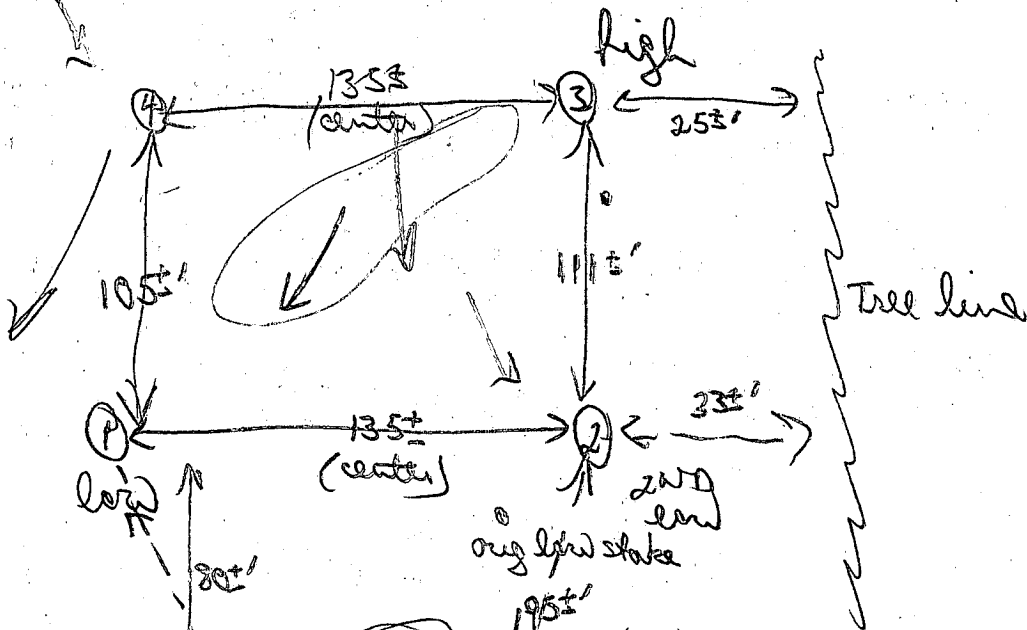 high
135±
(center)
4
3
25±'
105±'
111±'
Tree line
33±'
135±
(center)
2
low
2ND
low
orig low stake
80±'
195±'